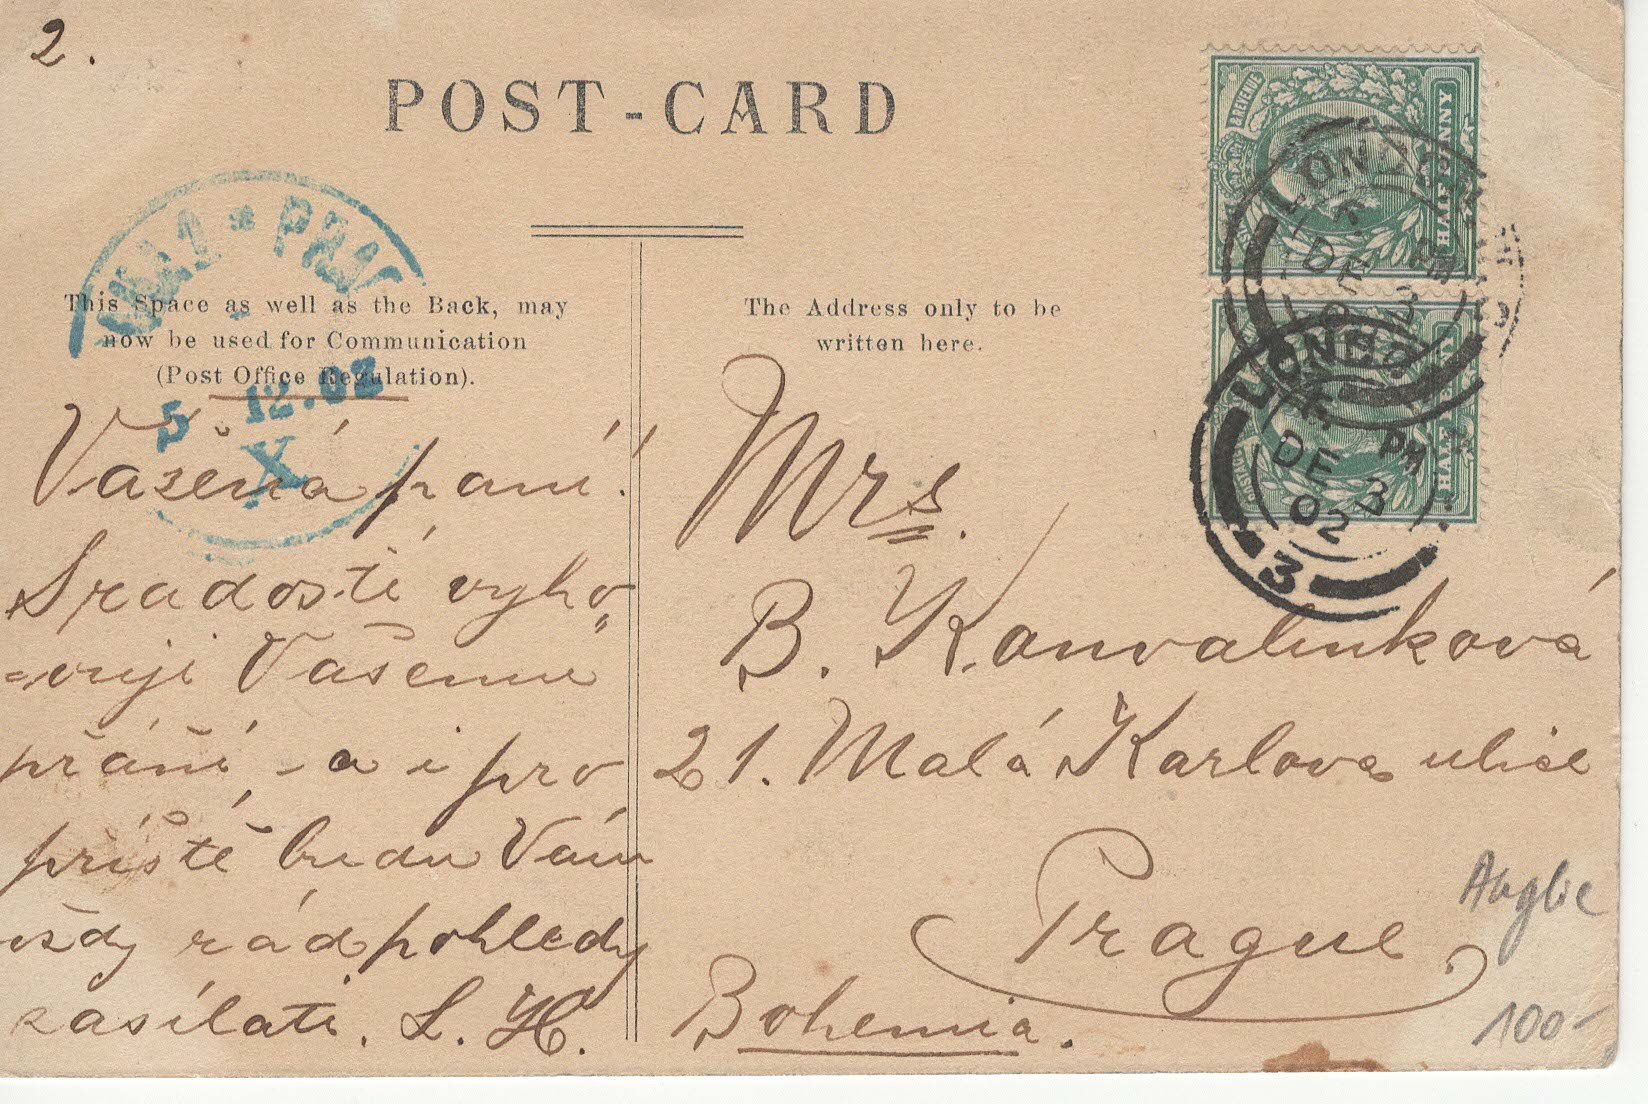 2.
POST-CARD
This Space as well as the Back, may
now be used for Communication
(Post Office Regulation).
The Address only to be
written here.
5 12.02
X
Vážená paní!
S radostí vyho-
-vuji Vašemu
přání, - a i pro
příště budu Vám
vždy rád pohledy
zasílati. L. H.
Mrs.
B. Konvalinková
21. Malá Karlova ulice
Prague.
Bohemia.
Anglie
100-
& REVENUE
HALFPENNY
LONDON
PM
DE 3
02
LONDO
PM
DE 3
02
3